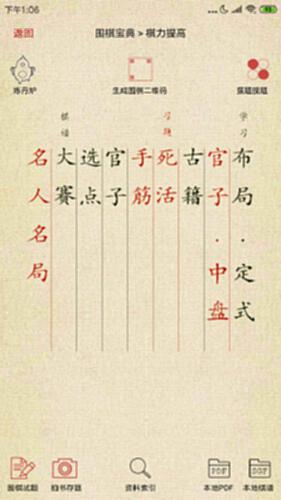 下午1:06
返回
围棋宝典 > 棋力提高
炼丹炉
生成围棋二维码
学习
布局·定式
官子·中盘
古籍
习题
死活
手筋
官子
选点
棋谱
大赛
名人名局
PDF
SGF
围棋试题
拍书存题
资料索引
本地PDF
本地棋谱